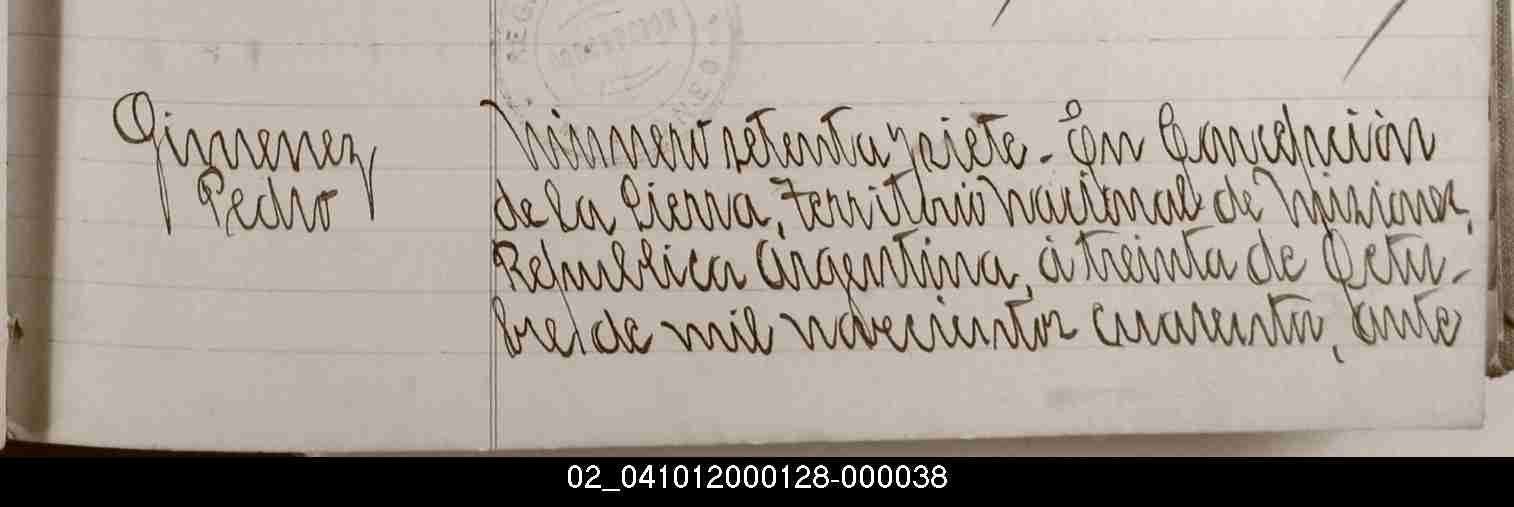 Gimenez
Pedro
Número setenta y siete. En Concepción
de la Sierra, territorio nacional de Misiones,
Republica Argentina, á treinta de Octu-
bre de mil novecientos cuarenta, ante
02_041012000128-000038